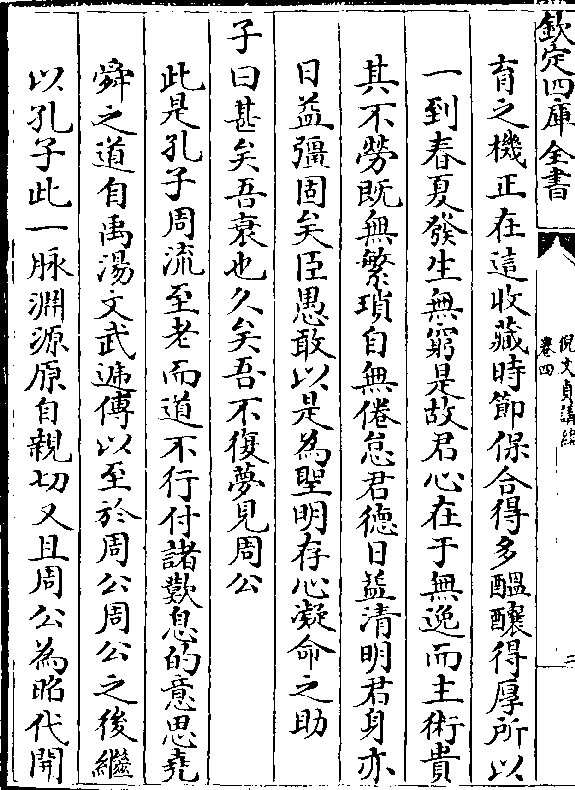 欽定四庫全書
倪文貞講編
卷四
三
育之機正在這收藏時節保合得多醞釀得厚所以
一到春夏發生無窮是故君心在于無逸而主術貴
其不勞既無繁瑣自無倦怠君德日益清明君身亦
日益彊固矣臣愚敢以是為聖明存心凝命之助
子曰甚矣吾衰也久矣吾不復夢見周公
此是孔子周流至老而道不行付諸歎息的意思堯
舜之道自禹湯文武遞傳以至於周公周公之後繼
以孔子此一脈淵源原自親切又且周公為昭代開